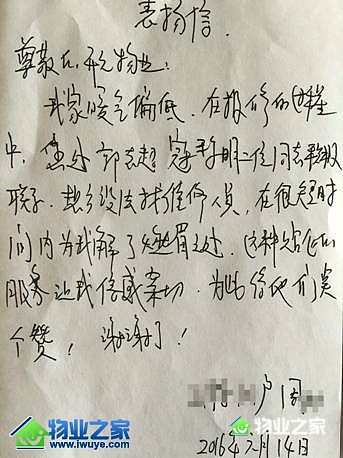 表扬信
尊敬的 物业:
我家暖气偏低. 在报修的过程
中, 焦 郭志超 寇 明二位同志积极
联系. 想方设法找维修人员, 在很短时
间内为我解了燃眉之处. 这种贴心的
服务让我倍感亲切. 为此给他们点
个赞! 谢谢!
户
2016年2月14日
物业之家
www.iwuye.com
物业之家